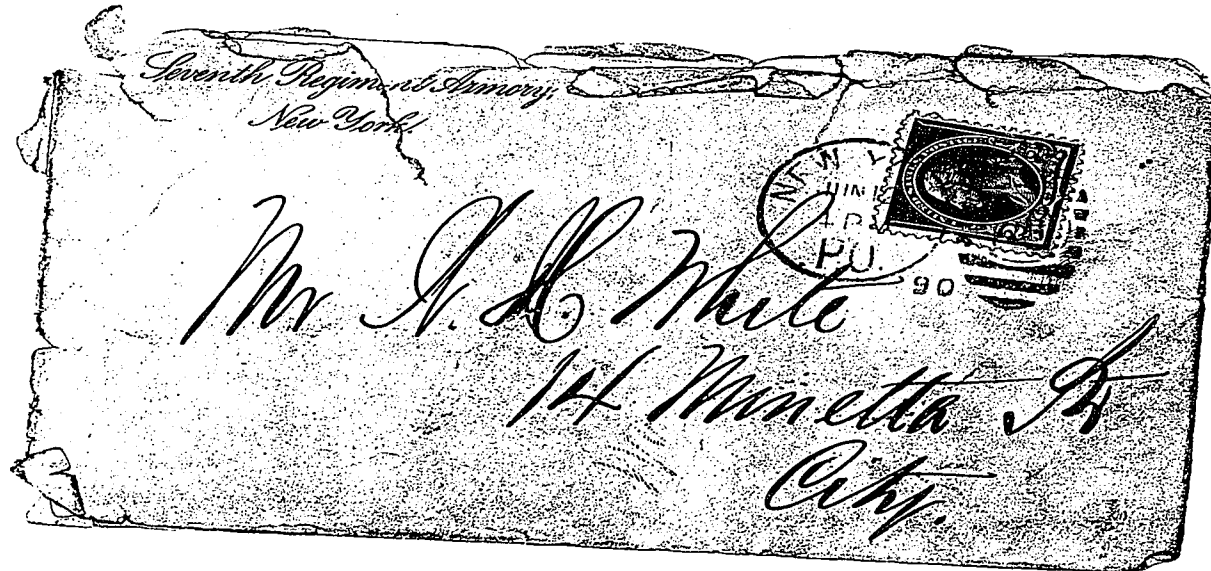 Seventh Regiment Armory,
New York.
NEW Y
JUN
1 P
P.O.
90
Mr N. H. White
14 Minetta St
City.